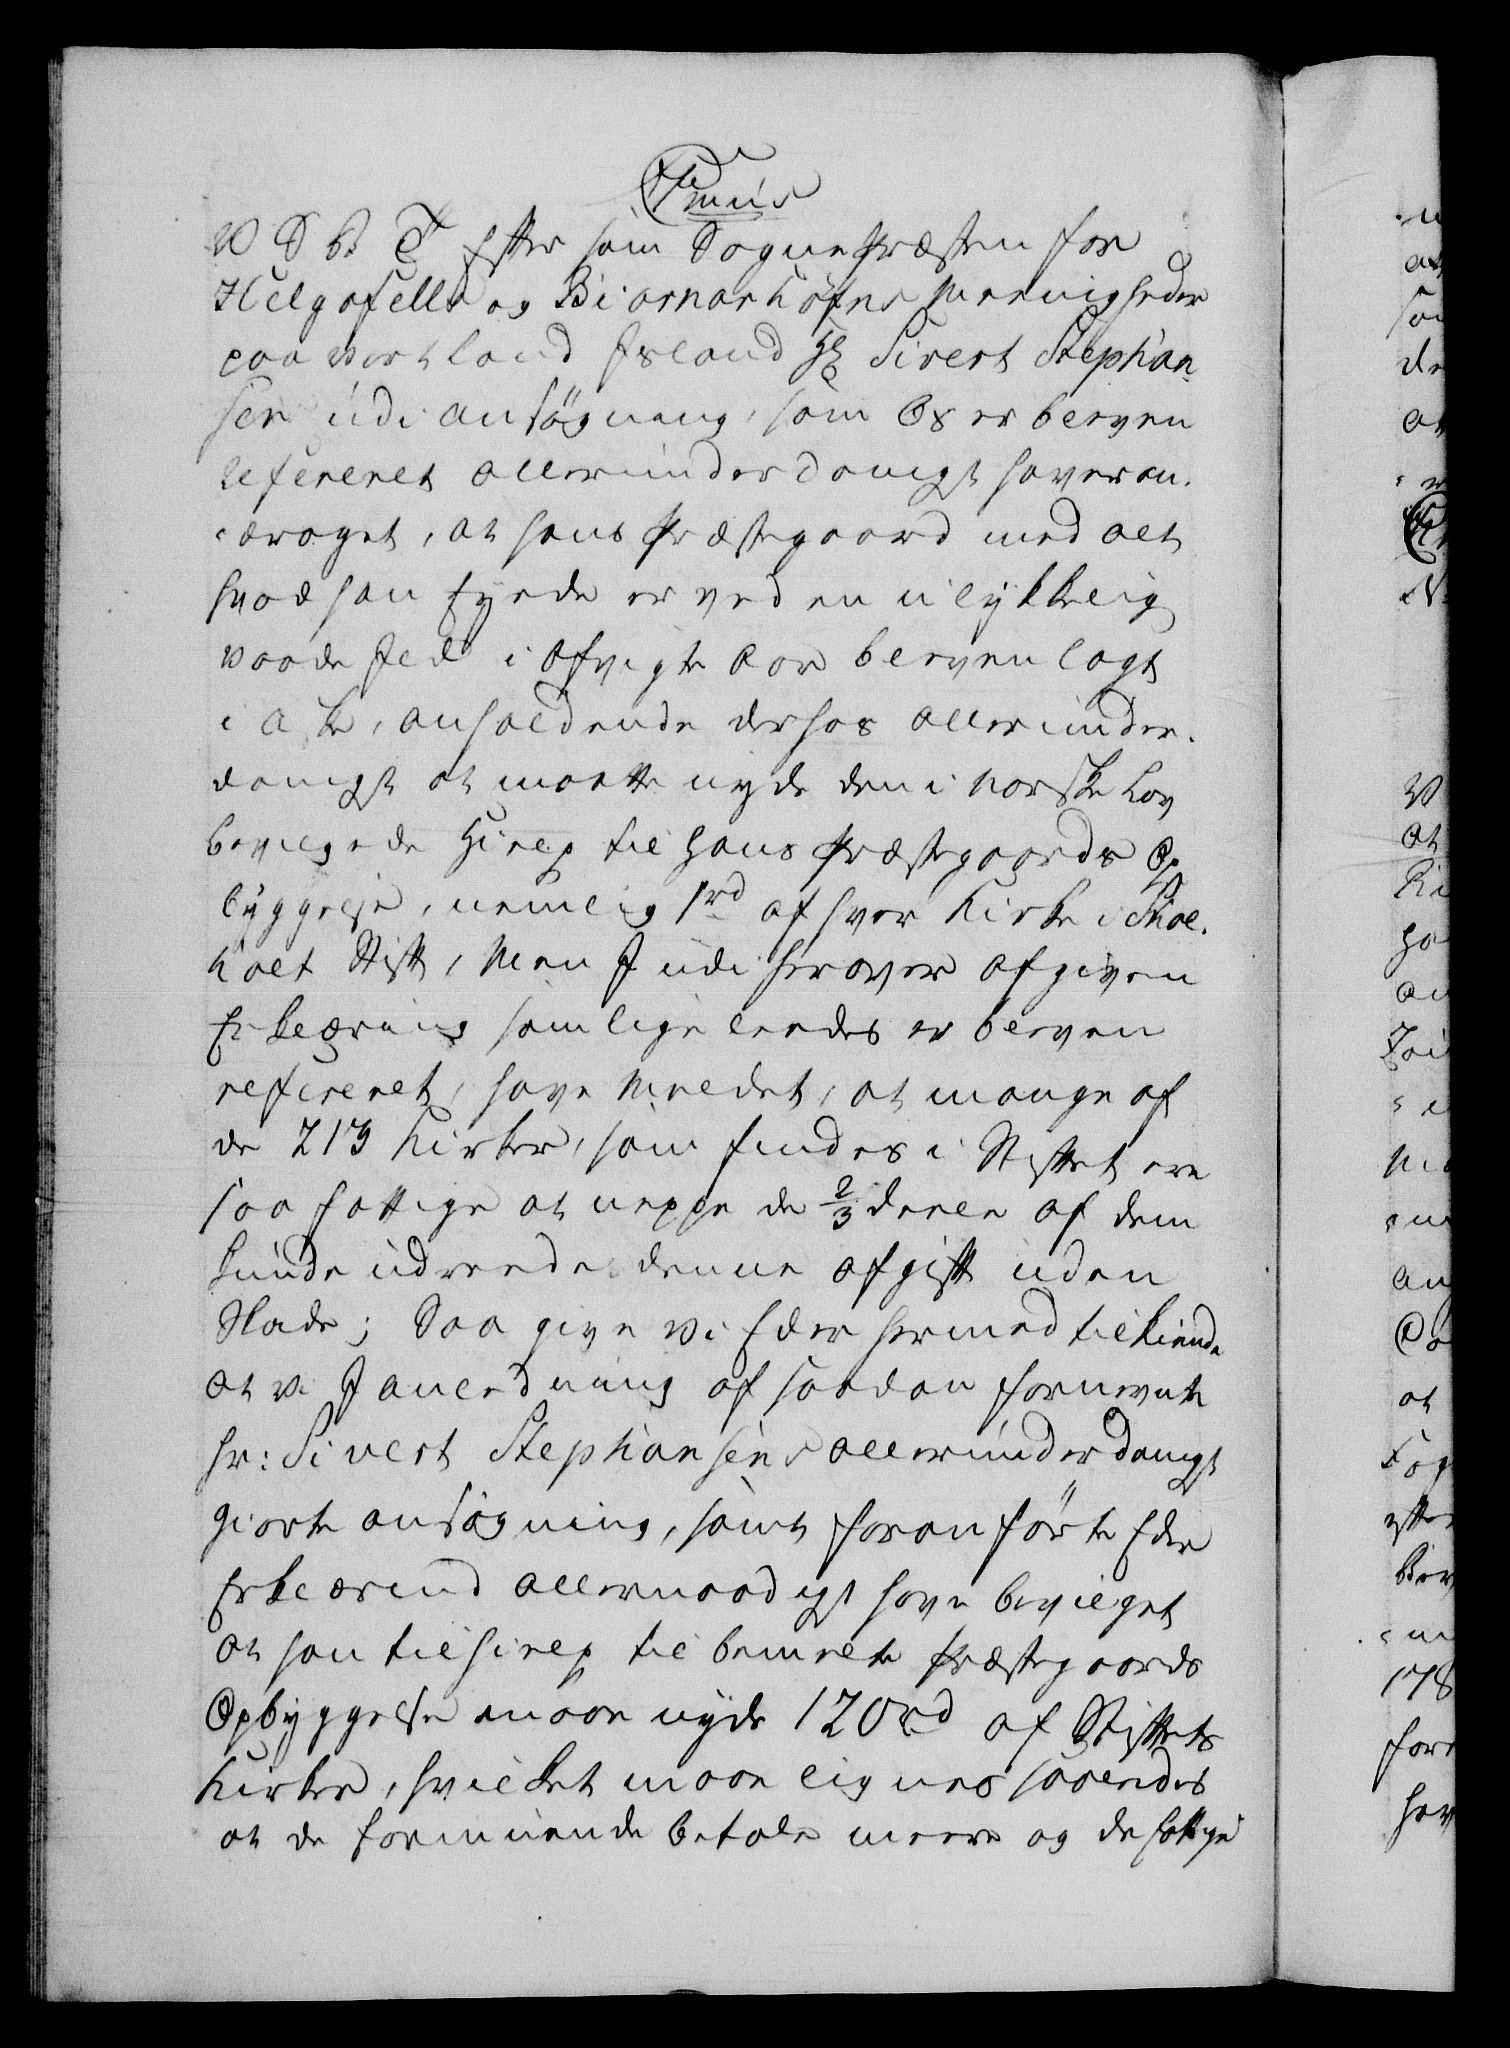 V S G T Efter som Sognepræsten for
Helgafells og Biarnarhöfns Meenigheder
paa vort land Island Hr Sivert Stephan¬
sen udi ansögning, som Os er bleven
refereret allerunderdanigst haver an¬
draget, at hans Præstegaard med alt
hvad han Eyede er ved en ulykkelig
vaade Jld i afvigte Aar bleven lagt
i Aske, anholdende derhos allerunder¬
danigst at maatte nyde den i Norske Lov
bevilgede Hielp til hans Præstegaards Op
byggelse, nemlig 1rd af hver Kirke i Skal¬
holt Stift, Men I udi herover afgiven
Erklæring som ligeleedes er bleven
refereret, have Meldet, at mange af
de 213 Kirker, som findes i Stiftet ere
saa fattige at neppe de 2/3 deele af dem
kunde udreede denne afgift uden
Skade; Saa give vi Eder hermed tilkiende
at vi J anledning af saadan fornevnte
Hr: Sivert Stephansens allerunderdanigst
giorte ansögning, samt foranförte Eders
Erklæring allernaadigst have bevilget
at han til hielp til bemelte Præstegaards
Opbyggelse maae nyde 120rd af Stiftets
Kirker, hvilket maae lignes saaledes
at de formuende betale meere og de fattige